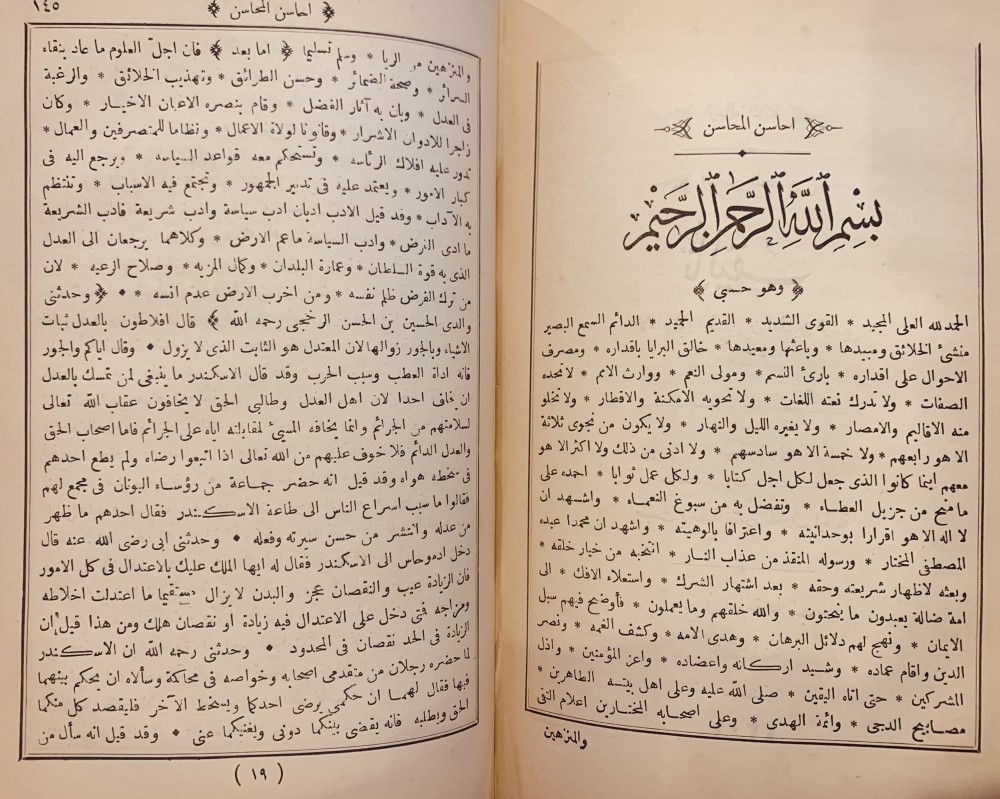 احاسن المحاسن
بسم الله الرحمن الرحيم
وهو حسبي
الحمد لله العلى المجيد * القوى الشديد * القديم الحميد * الدائم السمع البصير
منشئ الخلائق ومبيدها * وباعثها ومعيدها * خالق البرايا باقداره * ومصرف
الاحوال على اقداره * بارئ النسم * ومولى النعم * ووارث الامم * لاتحده
الصفات * ولا تدرك نعته اللغات * ولا تحويه الامكنة والاقطار * ولا تخلو
منه الاقاليم والامصار * ولا يغيره الليل والنهار * ولا يكون من نجوى ثلاثة
الا هو رابعهم * ولا خمسة الا هو سادسهم * ولا ادنى من ذلك ولا اكثر الا هو
معهم اينما كانوا الذى جعل لكل اجل كتابا * ولكل عمل ثوابا * احمده على
ما منح من جزيل العطاء * وتفضل به من سبوغ النعماء * واشهد ان
لا اله الا هو اقرارا بوحدانيته * واعترافا بالوهيته * واشهد ان محمدا عبده
المصطفى المختار * ورسوله المنقذ من عذاب النار * انتخبه من خيار خلقه *
وبعثه لاظهار شريعته وحقه * بعد اشتهار الشرك * واستعلاء الافك * الى
امة ضالة يعبدون ما ينحتون * والله خلقهم وما يعملون * فأوضح فيهم سبل
الايمان * ونهج لهم دلائل البرهان * وهدى الامه * وكشف الغمه * ونصر
الدين واقام عماده * وشيد اركانه واعضاده * واعز المؤمنين * واذل
المشركين * حتى اتاه اليقين * صلى الله عليه وعلى اهل بيته الطاهرين *
مصابيح الدجى * وائمة الهدى * وعلى اصحابه المختارين اعلام التقى
والمنزهين
احاسن المحاسن
١٤٥
والمنزهين من الريا * وسلم تسليما ﴿ اما بعد ﴾ فان اجل العلوم ما عاد بنقاء
السرائر * وصحة الضمائر * وحسن الطرائق * وتهذيب الخلائق * والرغبة
فى العدل * وبان به آثار الفضل * وقام بنصره الاعيان الاخيار * وكان
زاجرا للادوان الاشرار * وقانونا لولاة الاعمال * ونظاما للمتصرفين والعمال *
تدور عليه افلاك الرئاسه * وتستحكم معه قواعد السياسه * ويرجع اليه فى
كبار الامور * ويعتمد عليه فى تدبير الجمهور * وتجتمع فيه الاسباب * وتنتظم
به الآداب * وقد قيل الادب ادبان ادب سياسة وادب شريعة فادب الشريعة
ما ادى الفرض * وادب السياسة ما عم الارض * وكلاهما يرجعان الى العدل
الذى به قوة السلطان * وعمارة البلدان * وكمال المزيه * وصلاح الرعيه * لان
من ترك الفرض ظلم نفسه * ومن اخرب الارض عدم انسه * • ﴿ وحدثنى
والدى الحسين بن الحسن الرخجى رحمه الله ﴾ قال افلاطون بالعدل ثبات
الاشياء وبالجور زوالها لان المعتدل هو الثابت الذى لا يزول • وقال اياكم والجور
فانه اداة العطب وسبب الحرب وقد قال الاسكندر ما ينبغى لمن تمسك بالعدل
ان يخاف احدا لان اهل العدل وطالبي الحق لا يخافون عقاب الله تعالى
لسلامتهم من الجرائم وانما يخافه المسئ لمقابلته اياه على الجرائم فاما اصحاب الحق
والعدل الدائم فلا خوف عليهم من الله تعالى اذا اتبعوا رضاه ولم يطع احدهم
فى سخطه هواه وقد قيل انه حضر جماعة من رؤساء اليونان فى مجمع لهم
فقالوا ما سبب اسراع الناس الى طاعة الاسكندر فقال احدهم ما ظهر
من عدله وانتشر من حسن سيرته وفعله • وحدثنى ابى رضى الله عنه قال
دخل ادموحاس الى الاسكندر فقال له ايها الملك عليك بالاعتدال فى كل الامور
فان الزيادة عيب والنقصان عجز والبدن لا يزال مستقيما ما اعتدلت اخلاطه
ومزاجه فتى دخل على الاعتدال فيه زيادة او نقصان هلك ومن هذا قيل ان
الزيادة فى الحد نقصان فى المحدود • وحدثنى رحمه الله ان الاسكندر
لما حضره رجلان من متقدمى اصحابه وخواصه فى محاكمة وسألاه ان يحكم بينهما
فيها فقال لهما ان حكمى يرضى احدكما ويسخط الآخر فليقصد كل منكما
الحق ويطلبه فانه يقضى بينكما دونى ويغنيكما عنى • وقد قيل انه سأل من
( ١٩ )